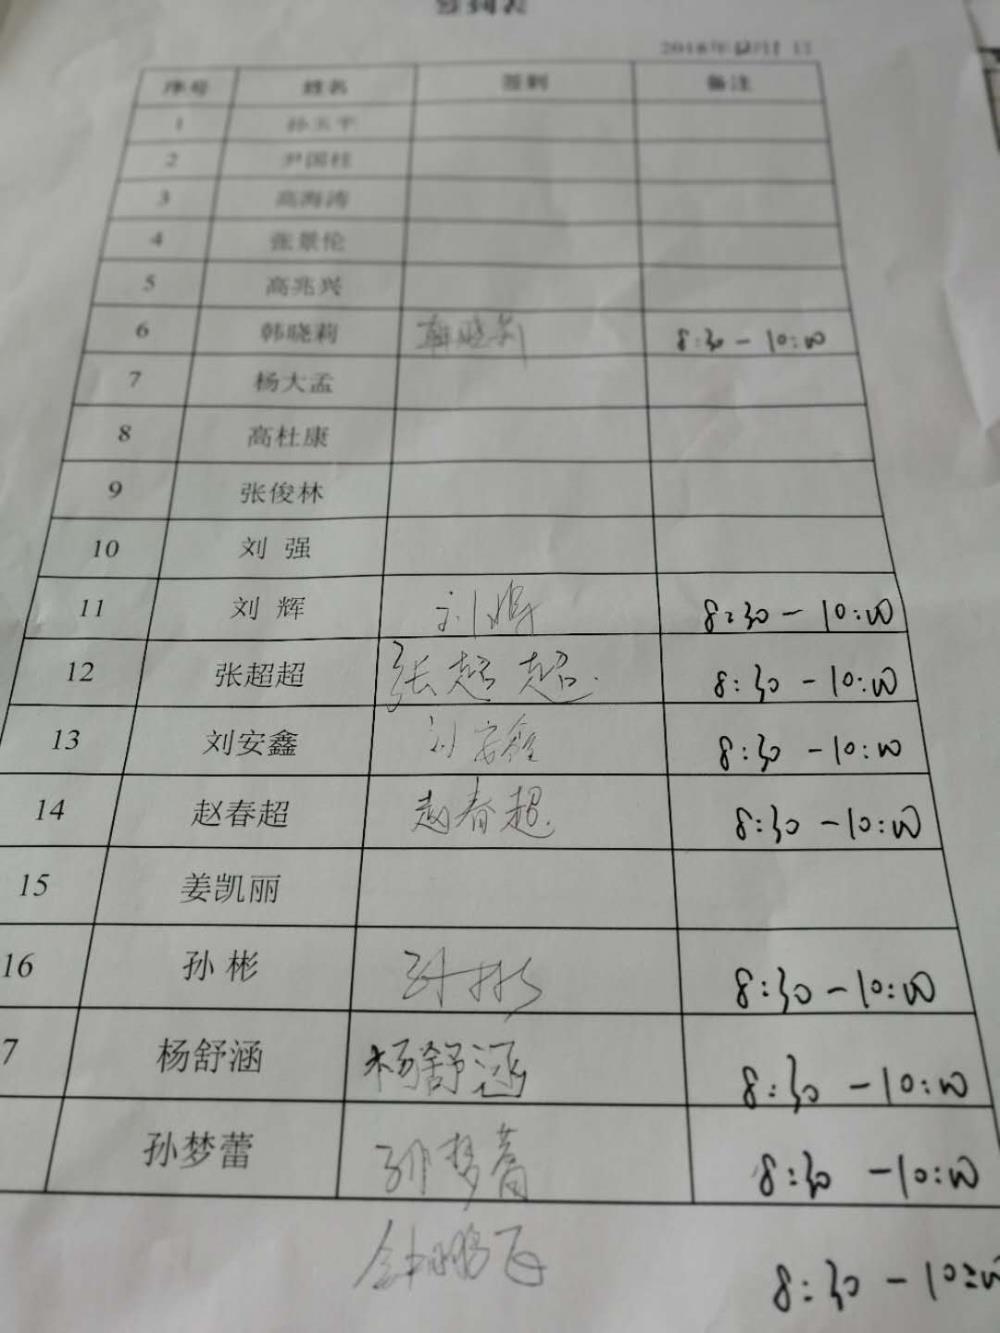 签到表
2018年 月1日
序号 姓名 签到 备注
1 孙玉平
2 尹国桂
3 高海涛
4 张景伦
5 高兆兴
6 韩晓莉 韩晓莉 8:30-10:00
7 杨大孟
8 高杜康
9 张俊林
10 刘 强
11 刘 辉 刘辉 8:30-10:00
12 张超超 张超超. 8:30-10:00
13 刘安鑫 刘安鑫 8:30-10:00
14 赵春超 赵春超. 8:30-10:00
15 姜凯丽
16 孙 彬 孙彬 8:30-10:00
7 杨舒涵 杨舒涵 8:30-10:00
孙梦蕾 孙梦蕾 8:30-10:00
钟鹏飞 8:30-10:00